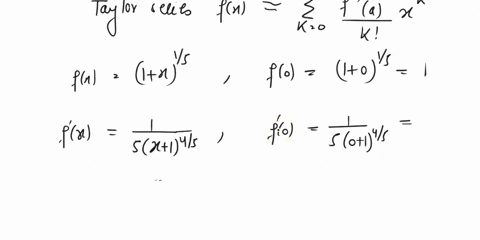 Taylor series f(x) = ∑ K=0 f (a) / K! x^K
f(x) = (1+x)^1/5 , f(0) = (1+0)^1/5 = 1
f'(x) = 1 / 5(x+1)^4/5 , f'(0) = 1 / 5(0+1)^4/5 =